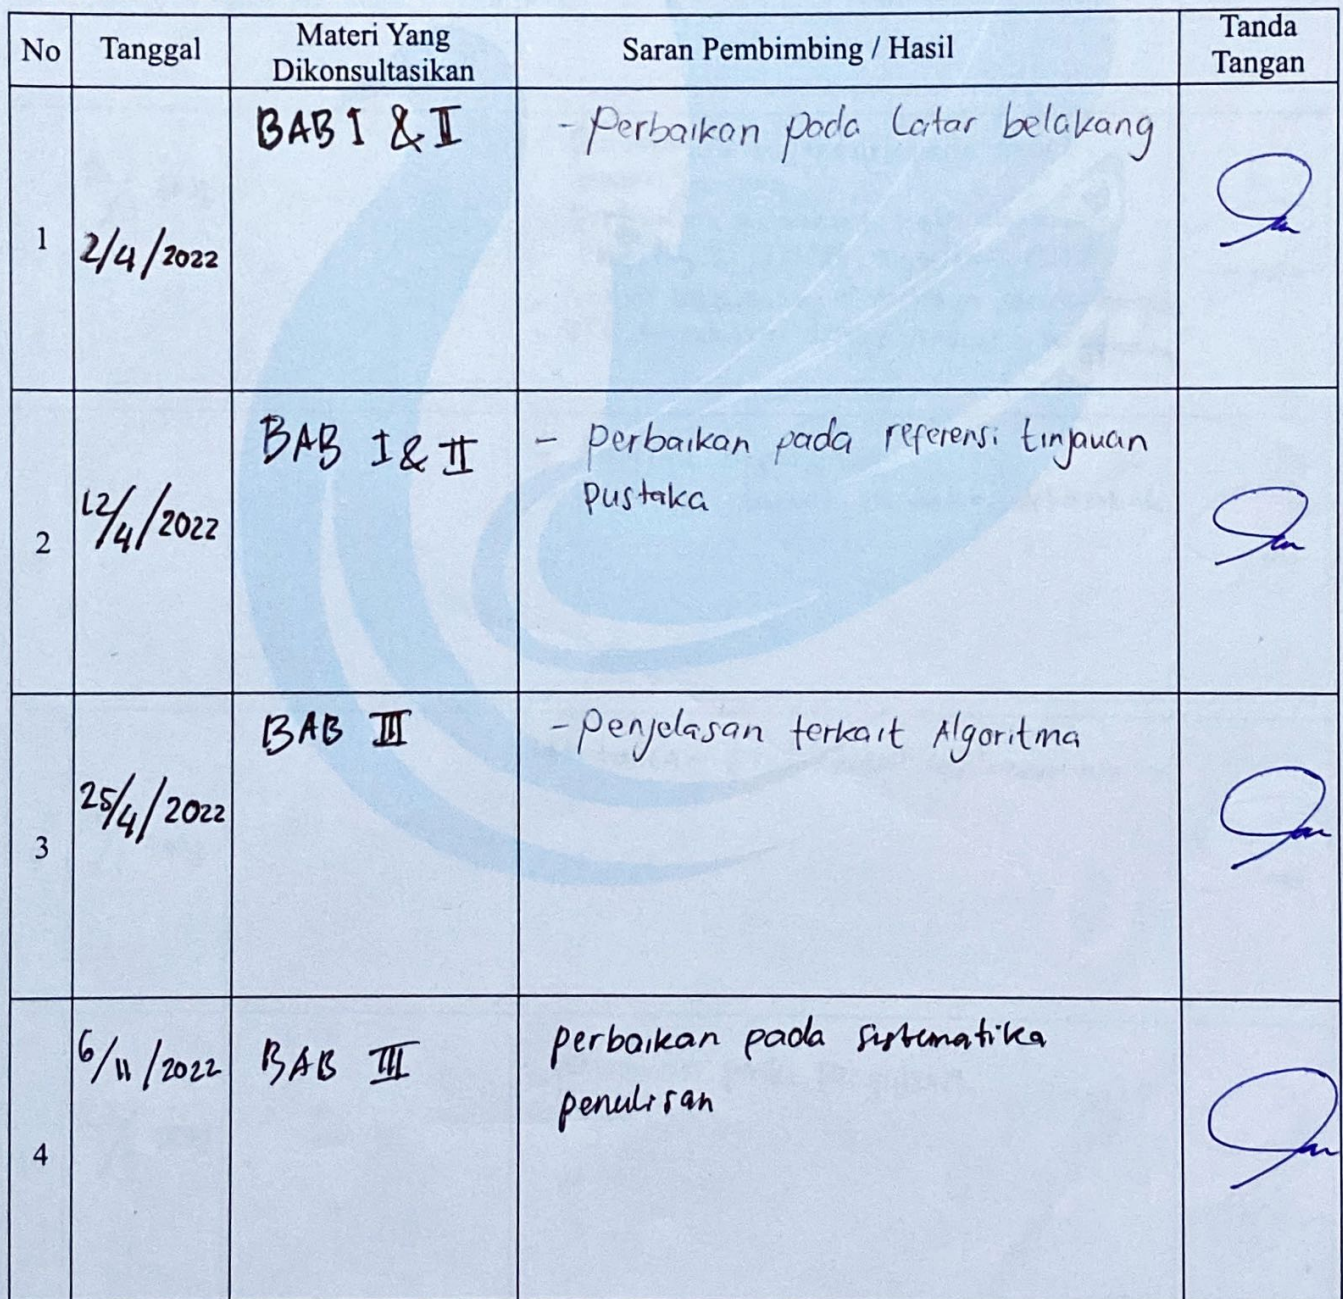 No Tanggal Materi Yang Dikonsultasikan Saran Pembimbing / Hasil Tanda Tangan
1 2/4/2022 BAB I & I - Perbaikan pada Latar belakang
2 12/4/2022 BAB I & II - perbaikan pada referensi tinjauan
pustaka
3 25/4/2022 BAB III - penjelasan terkait Algoritma
4 6/11/2022 BAB III perbaikan pada sistematika
penulisan